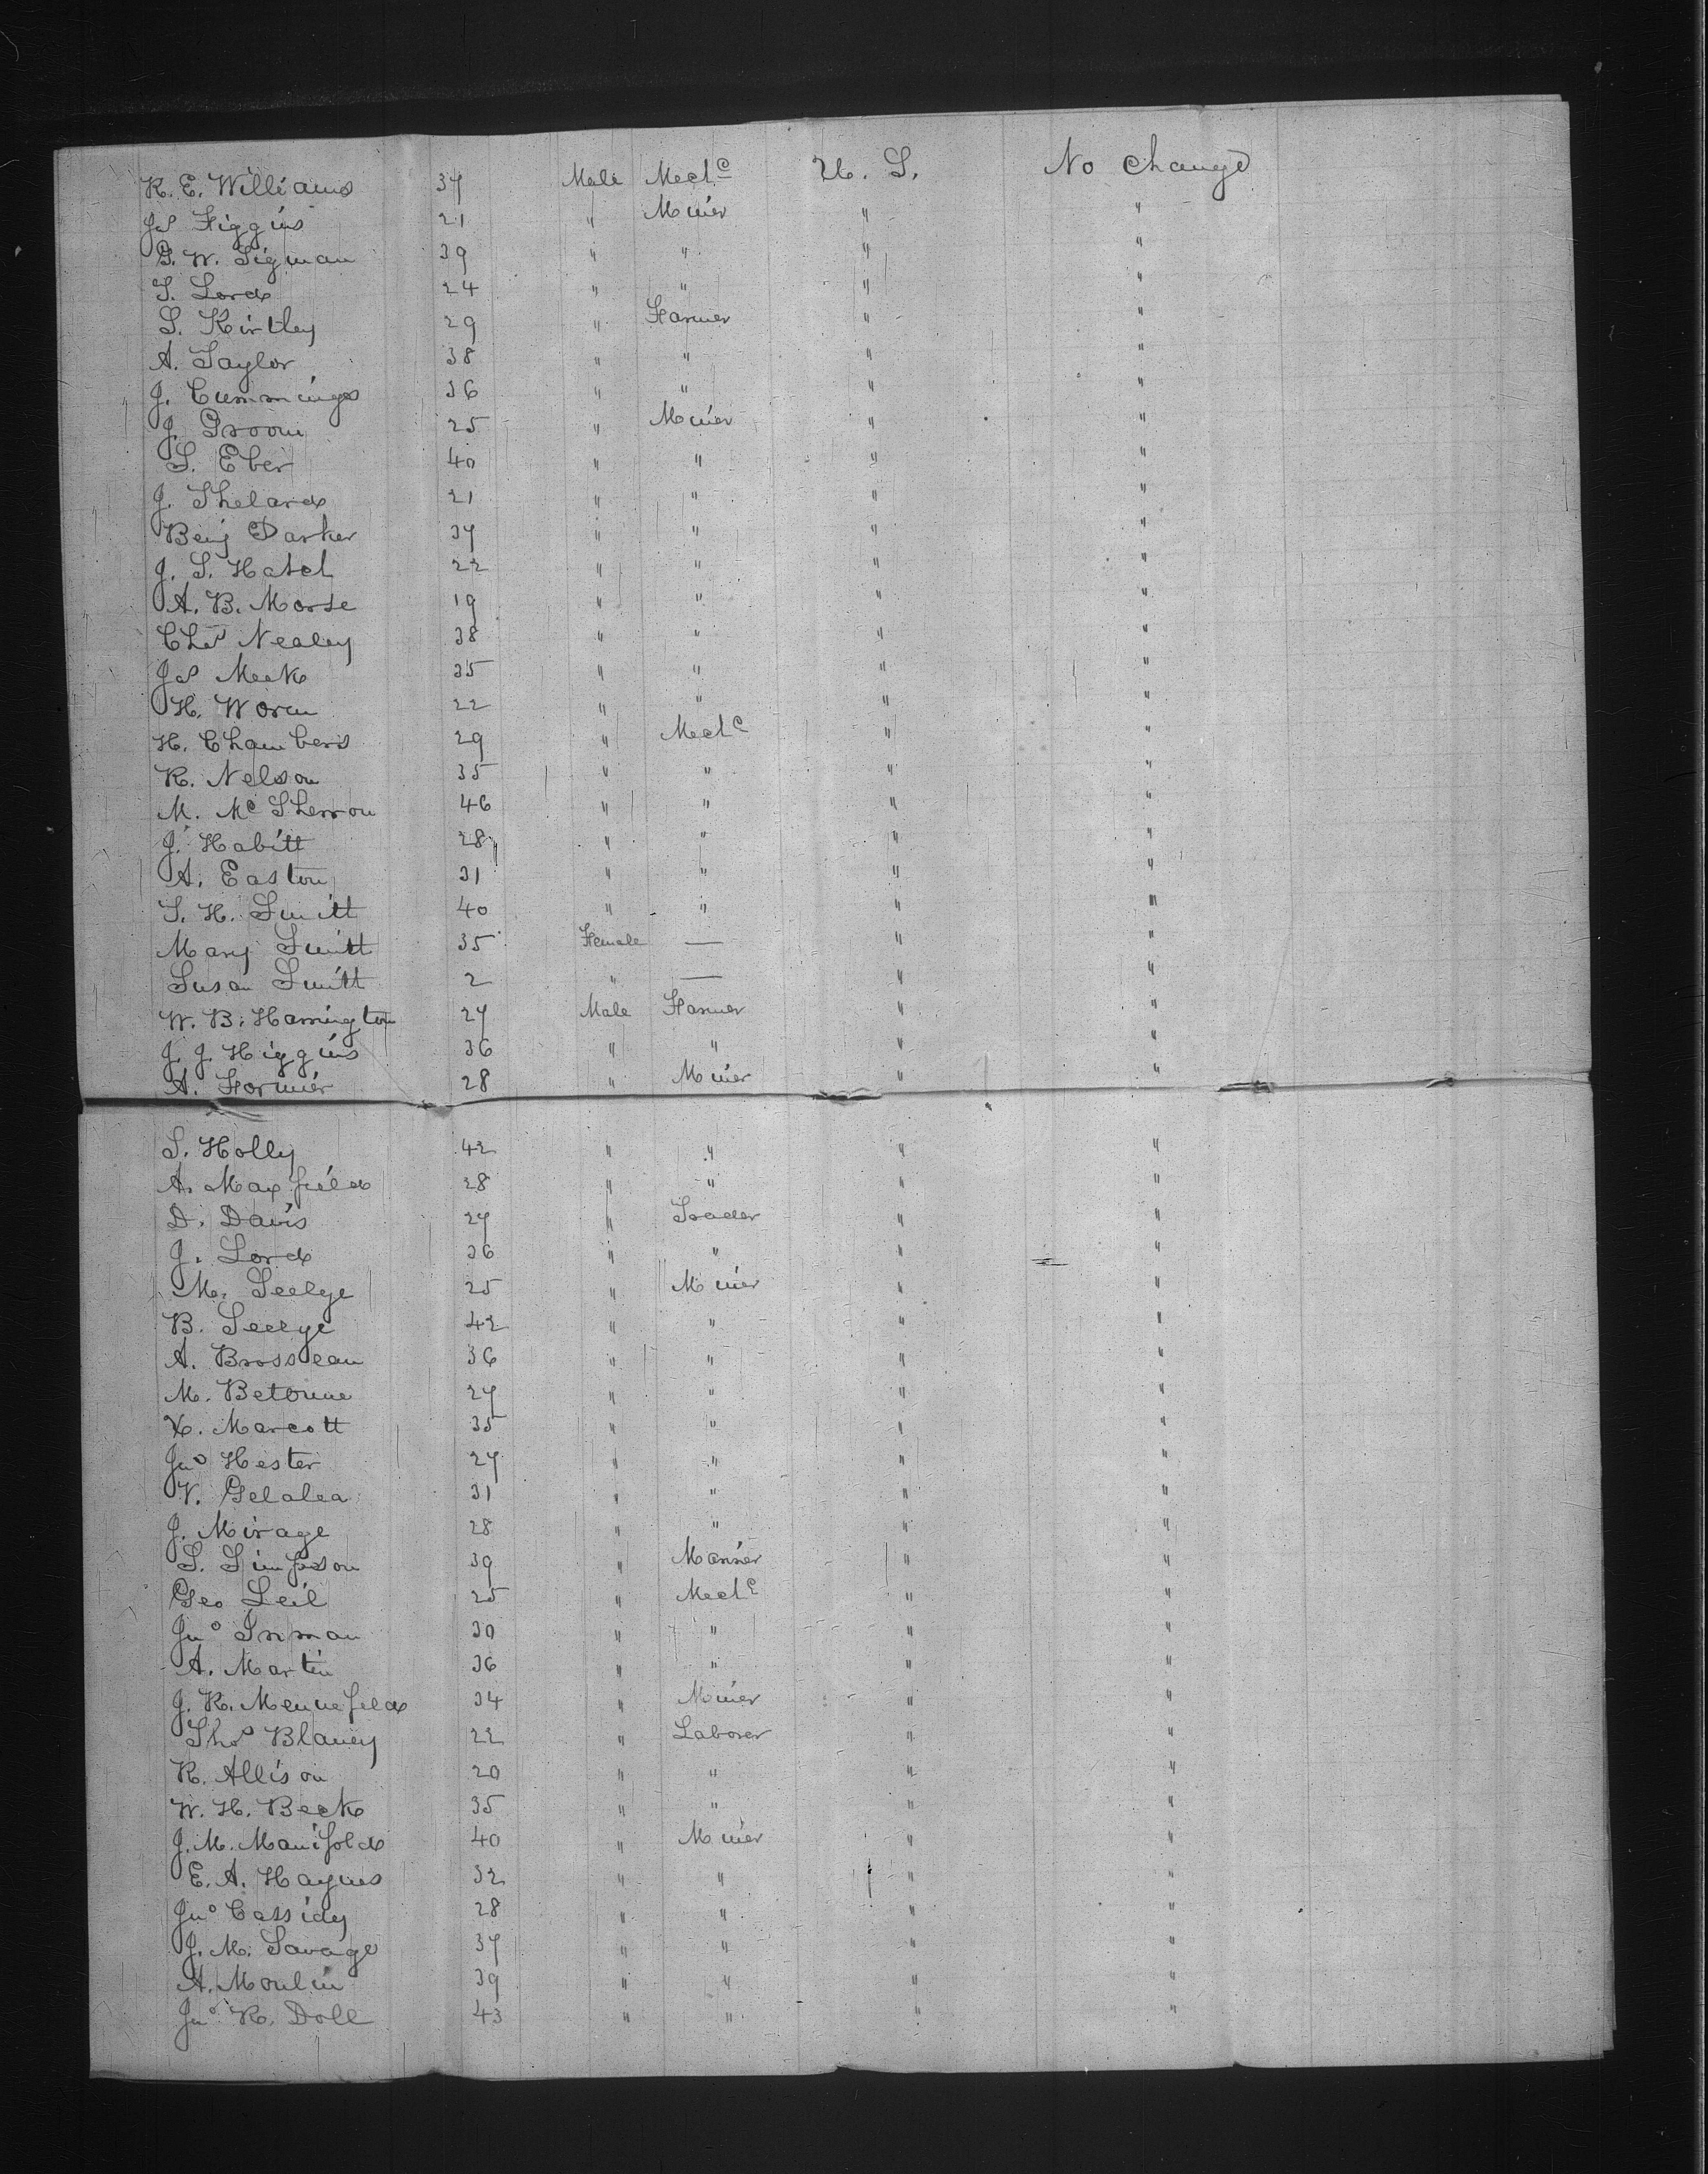 R. E. Williams 37 Male Mech^c U. S. No Change
Js Figgins 21 " Miner " "
G. W. Sigman 39 " " " "
T. Lord 24 " " " "
S. Kirtley 29 " Farmer " "
A. Taylor 38 " " " "
J. Cummings 36 " " " "
J. Groom 25 " Miner " "
S. Eber 40 " " " "
J. Shelard 21 " " " "
Benj Parker 37 " " " "
J. S. Hatch 22 " " " "
A. B. Morse 19 " " " "
Chs Nealey 38 " " " "
Js Meek 35 " " " "
H. Woren 22 " " " "
H. Chambers 29 " Mech^c " "
R. Nelson 35 " " " "
M. Mc Sherron 46 " " " "
J. Habitt 28 " " " "
A. Easton 31 " " " "
S. H. Smith 40 " " " "
Mary Smith 35 Female — " "
Susan Smith 2 " — " "
W. B. Harrington 27 Male Farmer " "
J. J. Higgins 36 " " " "
A. Formier 28 " Miner " "
S. Holly 42 " " " "
A. Maxfield 28 " " " "
D. Davis 27 " Trader " "
J. Lord 36 " " " "
M. Seelye 25 " Miner " "
B. Seelye 42 " " " "
A. Brosseau 36 " " " "
M. Betoune 27 " " " "
X. Marcott 35 " " " "
Jno Hester 27 " " " "
V. Gelalea 31 " " " "
J. Mirage 28 " " " "
S. Simpson 39 " Mariner " "
Geo Leil 25 " Mech^c " "
Jno Inman 30 " " " "
A. Martin 36 " " " "
J. R. Mennefeld 34 " Miner " "
Thos Blaney 22 " Laborer " "
R. Allison 20 " " " "
W. H. Beck 35 " " " "
J. M. Manifold 40 " Miner " "
E. A. Haynes 32 " " " "
Jno Cassidy 28 " " " "
J. M. Savage 37 " " " "
A. Moulin 39 " " " "
Jno R. Doll 43 " " " "